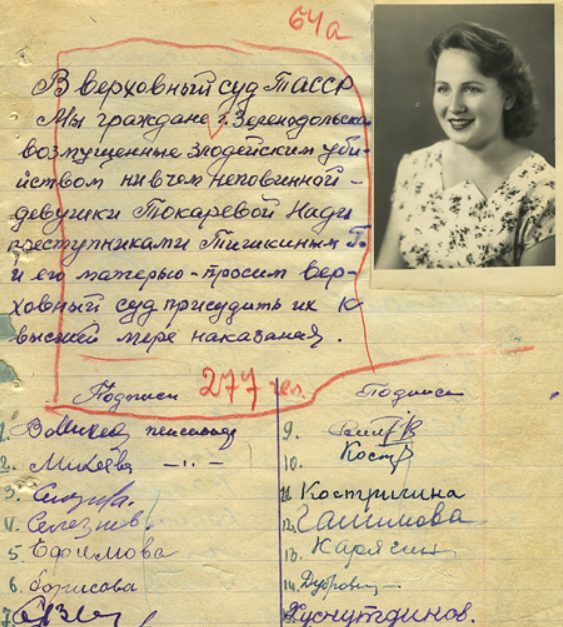 64а
В верховный суд ТАССР
Мы граждане г. Зеренодольска
возмущенные злодейским уби-
йством нивчем неповинной -
девушки Токаревой Нади
преступниками Тишкиным Г.
и его матерью - просим вер-
ховный суд присудить их к
высшей мере наказаная.
Подписи 277 чел. Подписи
1. пенсионер
2. Михеева —"—
3.
4. Селезнев.
5 Ефимова
6. Борисова
7.
9.
10. Костр
11. Костригина
12. Галимова
13. Карягин
14. Дубровин
Хуснутдинов.